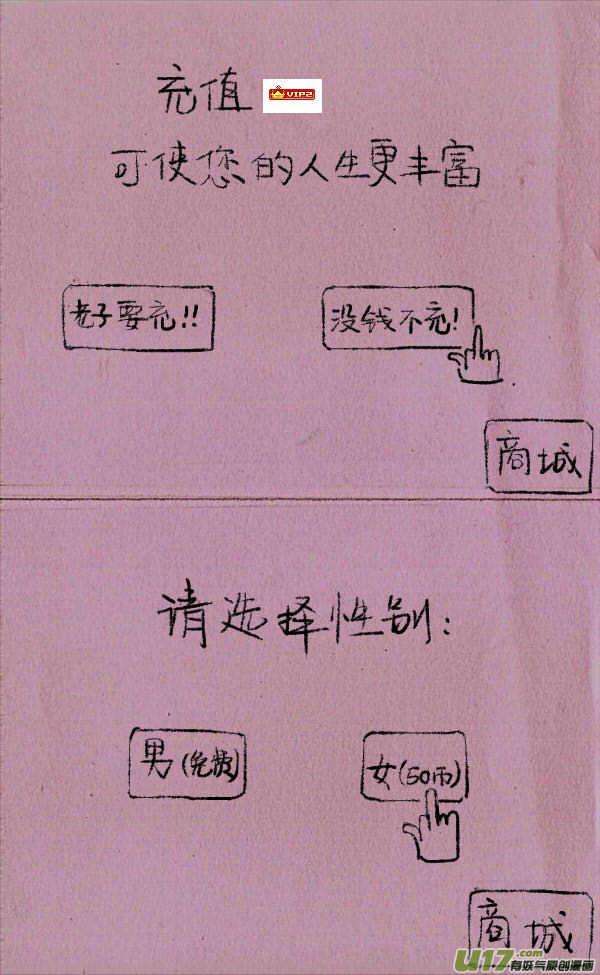 充值 VIP2
可使您的人生更丰富
老子要充!!
没钱不充!
商城
请选择性别:
男(免费)
女(50币)
商城
U17.com
有妖气原创漫画